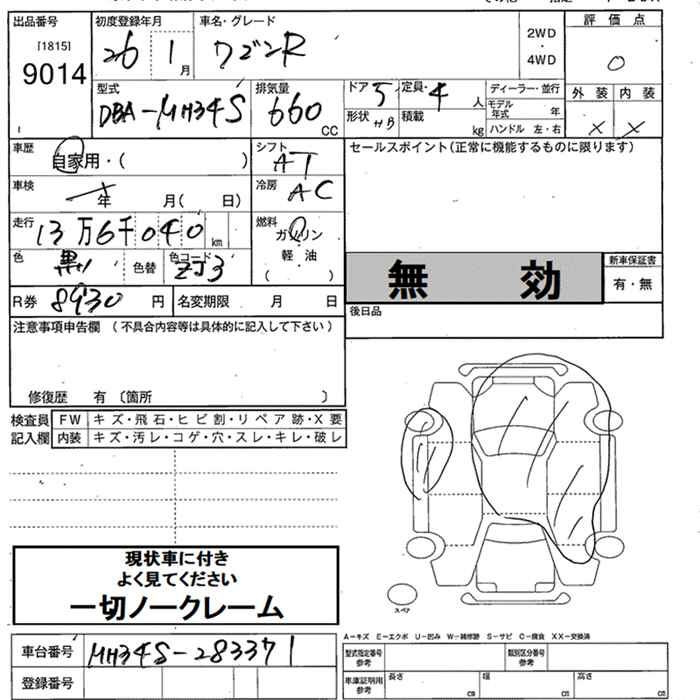 出品番号 初度登録年月 車名・グレード 評価点
[1815] 26 1月 ワゴンR 2WD・4WD 0
9014
型式 排気量 ドア 5 定員・4人 ディーラー・並行 外装 内装
DBA-MH34S 660CC 形状 HB 積載 kg モデル年式 年 × ×
ハンドル 左・右
車歴 自家用・( ) シフト AT セールスポイント(正常に機能するものに限ります)
車検 年 月( 日) 冷房 AC
走行 13万6千040km 燃料 ガソリン
軽油
( )
色 黒 色替 色コード ZJ3 無効 新車保証書
有・無
R券 8930円 名変期限 月 日 後日品
注意事項申告欄 (不具合内容等は具体的に記入して下さい)
修復歴 有 〔箇所 〕
検査員 FW キズ・飛石・ヒビ割・リペア跡・X要
記入欄 内装 キズ・汚レ・コゲ・穴・スレ・キレ・破レ
現状車に付き
よく見てください
一切ノークレーム
スペア
A-キズ E-エクボ U-凹み W-補修跡 S-サビ C-腐食 XX-交換済
車台番号 MH34S-283371 型式指定番号 参考 類別区分番号 参考
登録番号 車庫証明用 参考 長さ cm 幅 cm 高さ cm